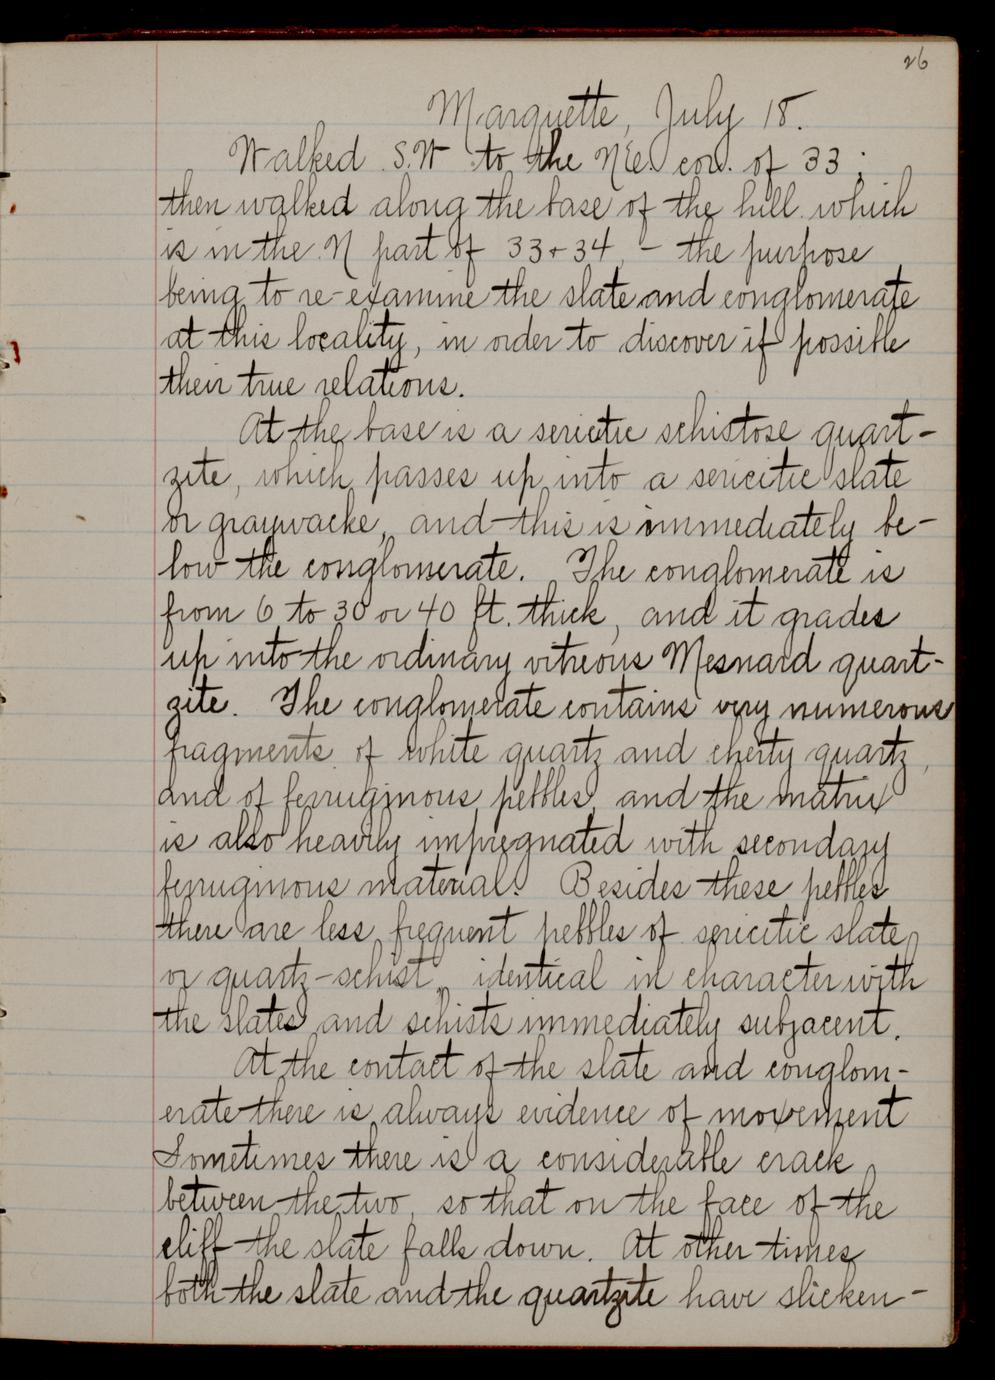 26
Marquette, July 18.
Walked S.W to the N.E. cor. of 33;
then walked along the base of the hill which
is in the N part of 33 + 34, - the purpose
being to re-examine the slate and conglomerate
at this locality, in order to discover if possible
their true relations.
At the base is a sericitic schistose quart-
zite, which passes up into a sericitic slate
or graywacke, and this is immediately be-
low the conglomerate. The conglomerate is
from 6 to 30 or 40 ft. thick, and it grades
up into the ordinary vitreous Mesnard quart-
zite. The conglomerate contains very numerous
fragments of white quartz and cherty quartz,
and of ferruginous pebbles, and the matrix
is also heavily impregnated with secondary
ferruginous material. Besides these pebbles
there are less frequent pebbles of sericitic slate
or quartz-schist, identical in character with
the slates and schists immediately subjacent.
At the contact of the slate and conglom-
erate there is always evidence of movement
Sometimes there is a considerable crack
between the two, so that on the face of the
cliff the slate falls down. At other times
both the slate and the quartzite have slicken-